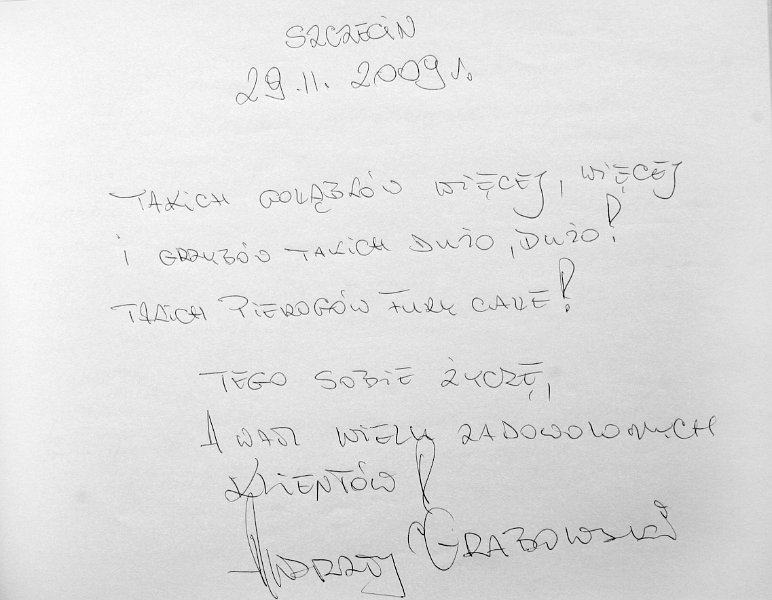 SZCZECIN
29.11.2009 r.
TAKICH GOŁĄBKÓW WIĘCEJ, WIĘCEJ
I GRZYBÓW TAKICH DUŻO, DUŻO!
TAKICH PIEROGÓW FURY CAŁE!
TEGO SOBIE ŻYCZĘ,
A WAM WIELU ZADOWOLONYCH
KLIENTÓW!
ANDRZEJ GRABOWSKI